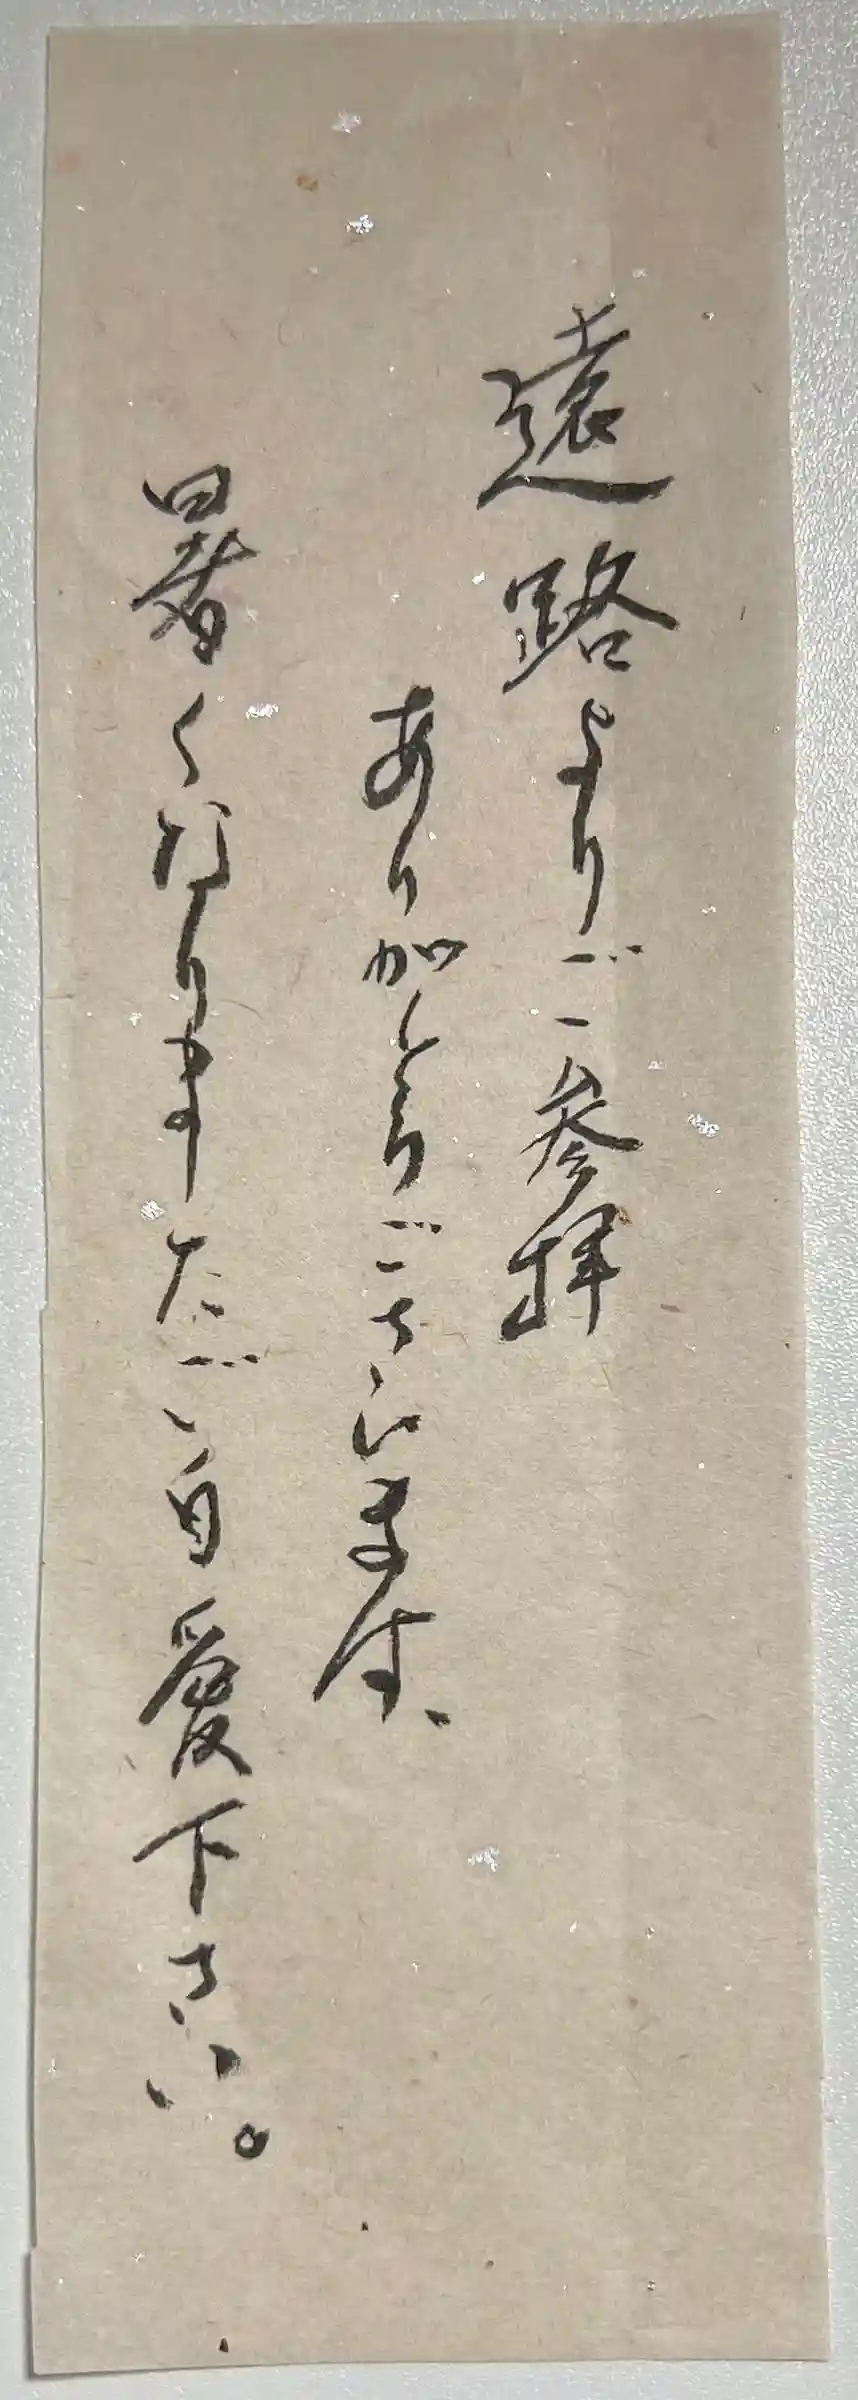 遠路よりご参拝
ありがとうございます、
暑くなりましたご自愛下さい。